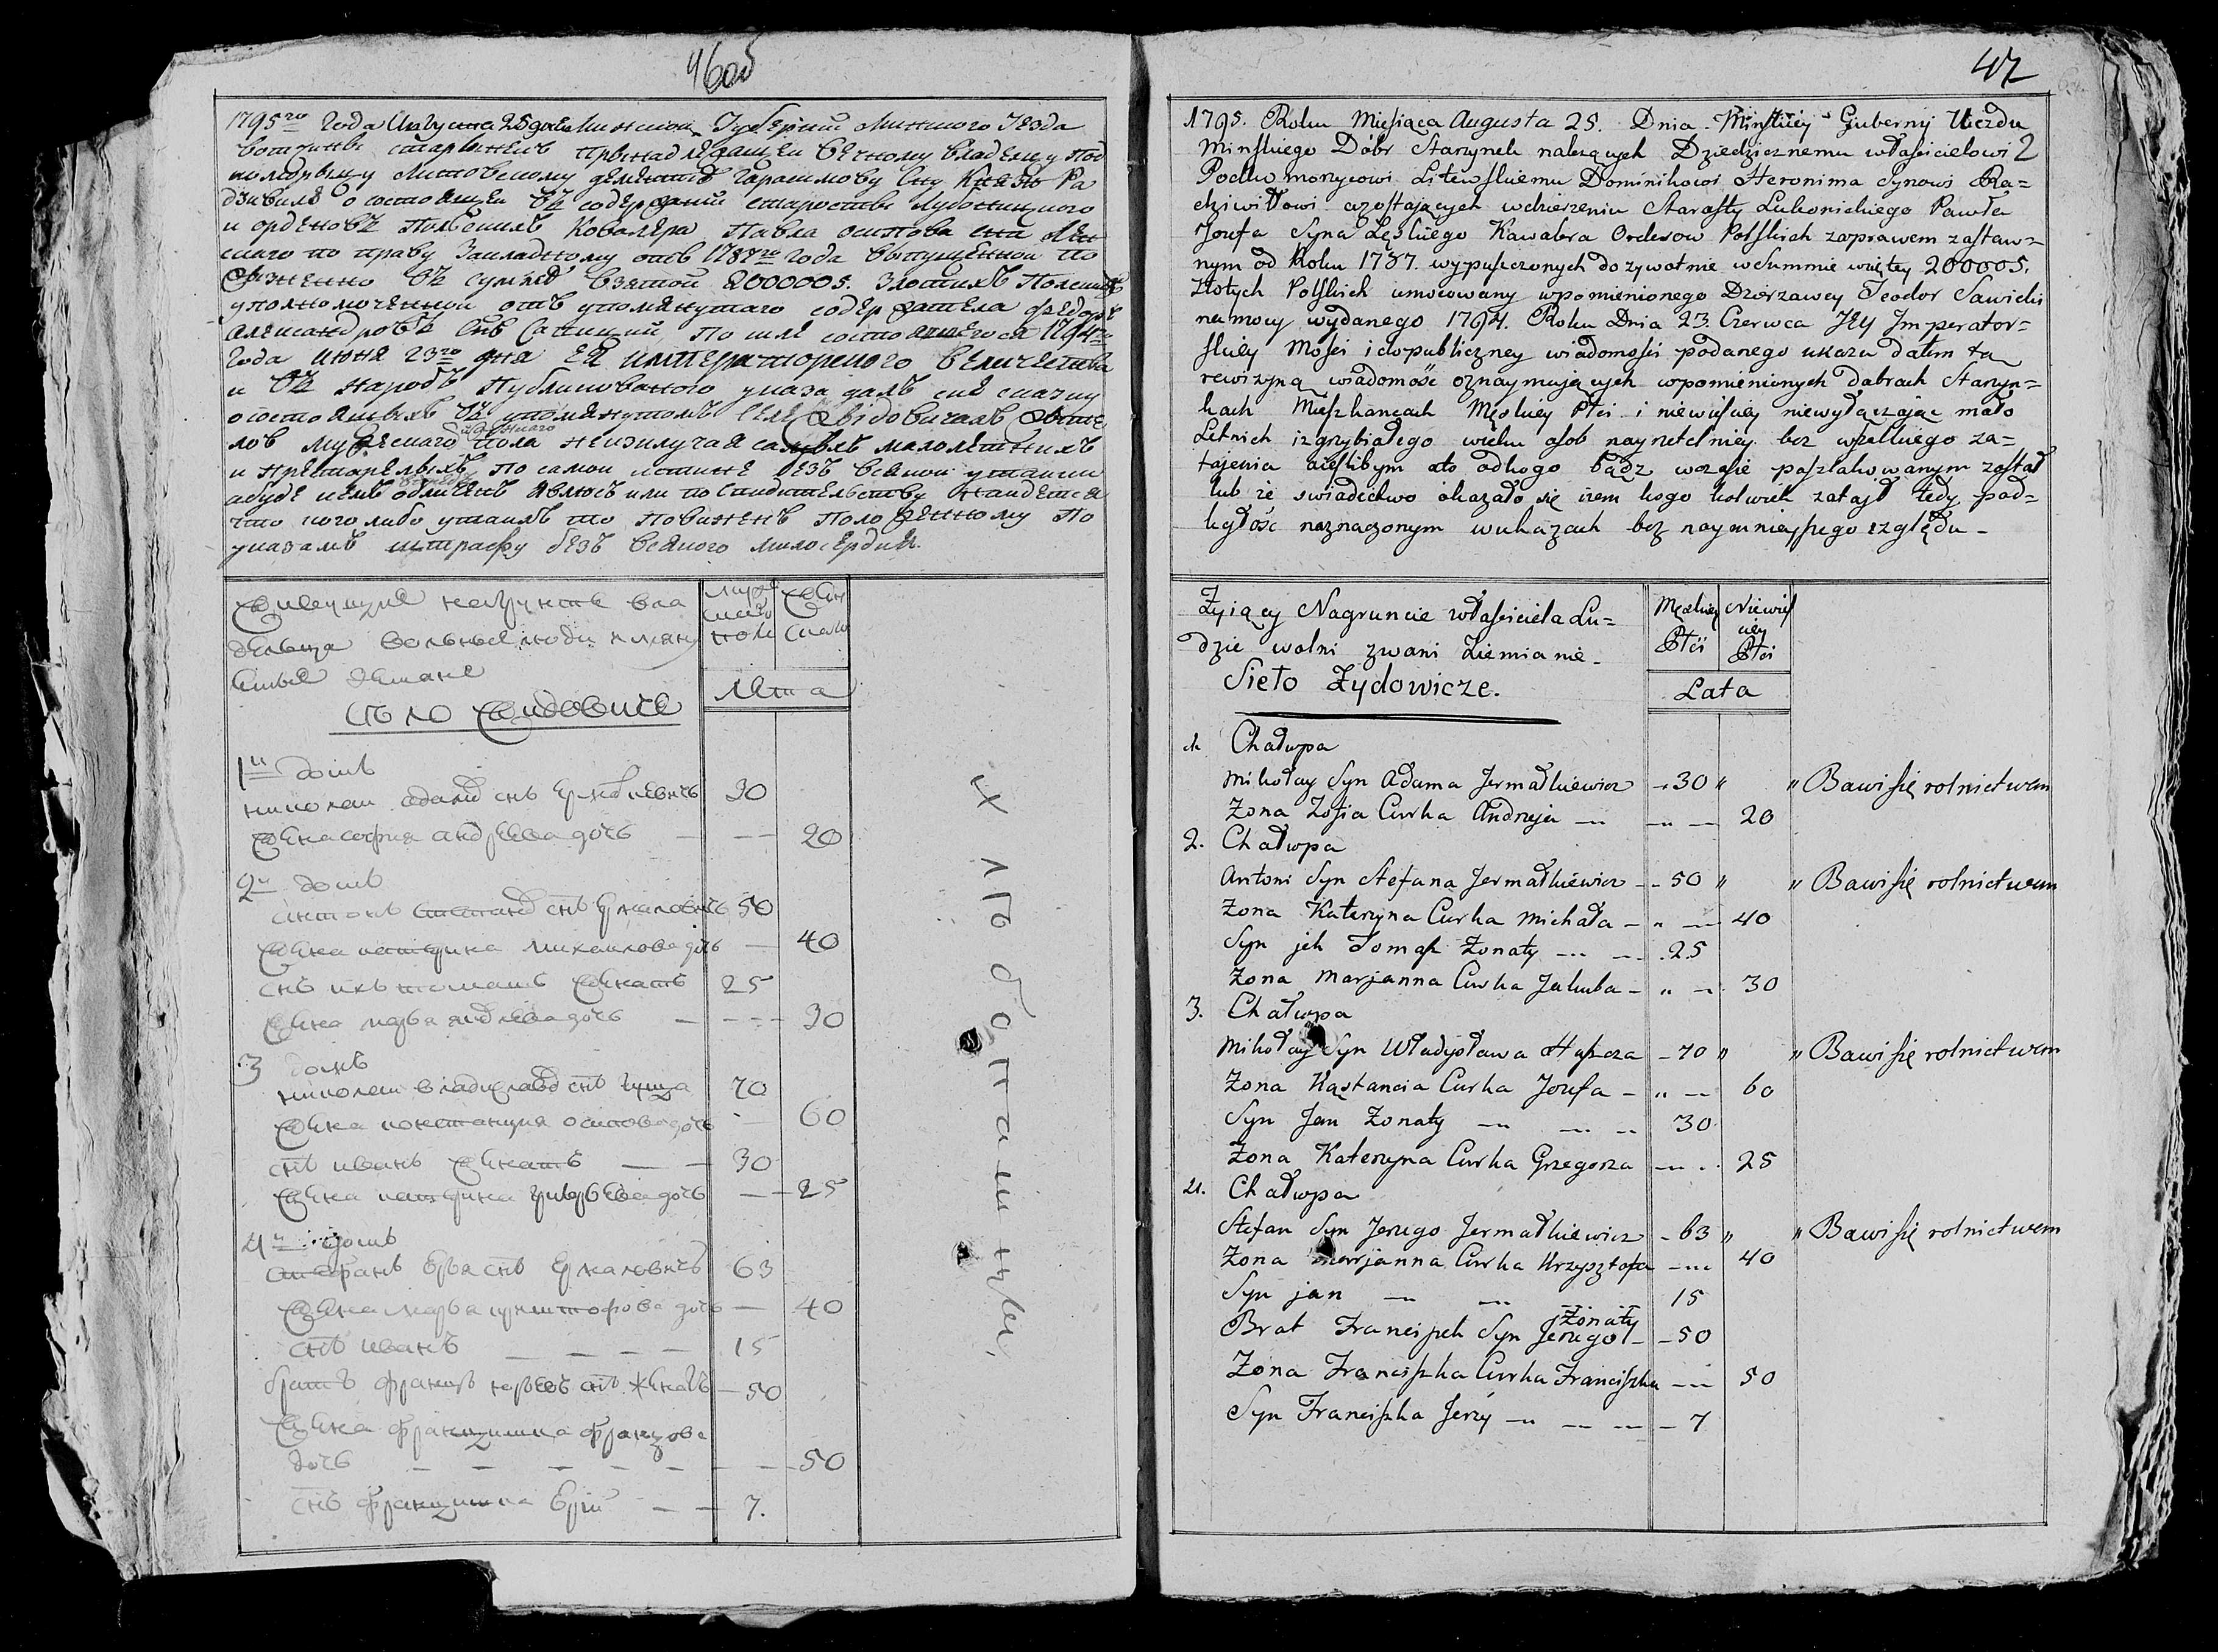 46 об
1795го Года Августа 25 дня Минской Губернии Минского Уезда
вотчины Старинек принадлежащей вечному владельцу под
коморжыцу Литовскому Доминику Геронимову Сну Князю Ра
дзивилу о состоящей въ содержании старосты Лубоницкого
и орденовъ Польскихъ Ковалера Павла Осипова сна
ского по праву Закладному отъ 1787го года выпущенной по
жизненно въ сумме взятой 2000005. Злотыхъ Польскихъ
уполномоченной отъ упомянутаго содержателя Федоръ
Александровъ Снъ Савицкий, по силе состоявшегося 1794го
Года июня 23го дня Ея Императорского Величества
и въ народъ публикованного указа далъ сия сказку
о состоящихъ въ упомянутомъ селе Жидовичахъ жите
ловъ мужеского и женскаго пола не изключая самыхъ малолетнихъ
и престарелыхъ по самой истинне безъ всякой утайки
а буде кемъ обличенъ явлюсь или по свидетельству найдется
что кого либо утаилъ то повиненъ положенному по
указамъ штрафу безъ всякого милосердия.
Живущие на грунте вла
дельца вольные люди
земяне
Село Жидовиче
муже
ского
пола
Жен
ского
Лета
1й домъ
Николай Адамовъ снъ Ермалкевичъ 30
Жена София Андреева дочь — — 20
2й домъ
Антонъ Степановъ снъ Ермалкевичъ 50
Жена Катерина Михайлова дочь — 40
Снъ ихъ Томашъ Женатъ 25
Жена Марья дочь — — 30
3 домъ
Николай Владиславовъ снъ Гуща 70
Жена Констанция Осипова дочь — 60
Снъ Иванъ Женатъ — — 30
Жена Катерина Григорьева дочь — 25
4й домъ
снъ Ермалкевичъ 63
Жена Марья Криштофова дочь — 40
Снъ Иванъ — — — — 15
братъ Францъ снъ Женатъ — 50
Жена Францишка Францова
дочь — — — — — — 50
Снъ Францишка — — 7.
Хлебопашцы
47
1795. Roku Miesiąca Augusta 25. Dnia Minskiey Guberny Uiezdu
Minskiego Dóbr Starzynek należących Dziedzicznemu właścicielowi 2
Podkomorzycowi Litewskiemu Dominikowi Heronima Synowi Ra=
dziwiłłowi a zostających w dzierżeniu Starosty Lubonickiego Pawła
Jozefa Syna Kawalera Orderow Polskich za prawem zastaw=
nym od Roku 1787. wypuszczonych dożywotnie w Summie wziętey 200005.
złotych Polskich umocowany wpomienionego Dzierżawcy Teodor Sawicki
na mocy wydanego 1794. Roku Dnia 23. Czerwca Jey Imperator=
skiey Mości i do publiczney wiadomości podanego ukazu dałem tą
rewizyną wiadomość oznaymującą w pomienionych dobrach Starzyn=
kach Mieszkancach Męskiey Płci i niewieściey niewyłączając mało
Letnich i zgrzybiałego wieku osob nayrzetelniey bez wszelkiego za=
tajenia a ieślibym oto od kogo bądz w czasie poszlakowanym został
lub że swiadectwo okazało się iżem kogo kolwiek zataił tedy pod=
ległość naznaczonym w ukazach bez naymnieyszego względu -
Żyiący Nagruncie właściciela Lu=
dzie wolni zwani Ziemianie.
Sieło Żydowicze.
Męskiey
Płci
Niewieś
ciey
Płci
Lata
1. Chałupa
Mikołay Syn Adama Jermałkiewicz - 30 " " Bawi się rolnictwem
Żona Zofia Curka Andrzeja — — 20
2. Chałupa
Antoni Syn Stefana Jermałkiewicz - 50 " " Bawi się rolnictwem
Żona Katerzyna Curka Michała - " — 40
Syn jch Tomasz Żonaty — — 25
Żona Marjanna Curka Jakuba - " — 30
3. Chałupa
Mikołay Syn Władysława Huszcza - 70 " " Bawi się rolnictwem
Żona Kąstancia Curka Jozefa - " — 60
Syn Jan Żonaty — — — 30
Żona Katerzyna Curka Grzegorza — 25
4. Chałupa
Stefan Syn Jerzego Jermałkiewicz - 63 " " Bawi się rolnictwem
Żona Marjanna Curka Krzysztofa — 40
Syn jan — — 15
Brat Franciszek Syn Jerzego Żonaty - 50
Żona Franciszka Curka Franciszka — 50
Syn Franciszka Jerzy — — — - 7